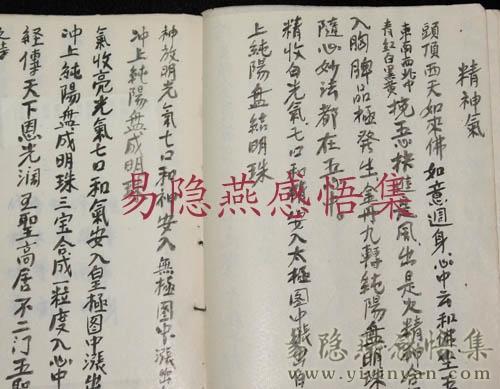 精神氣
頭頂西天如來佛 如意週身心中云和佛坐
東南西北中
青紅白黑黃 按 風出是 精神
入胸脾品極發生 金丹九轉純陽盤明珠
隨心妙法都在五
精收白光氣七口和 安入太極圖中漲出
上純陽盤結明珠
神放明光氣七口和神安入無極圖中漲出
沖上純陽盤成明珠
氣收亮光氣七口和氣安入皇極圖中漲出
沖上純陽盤成明珠三宝合成一粒度入心中
經傳天下恩光润五聖高居不二门五
易隐燕感悟集
易隐燕感悟集
www.yiyinyan.com